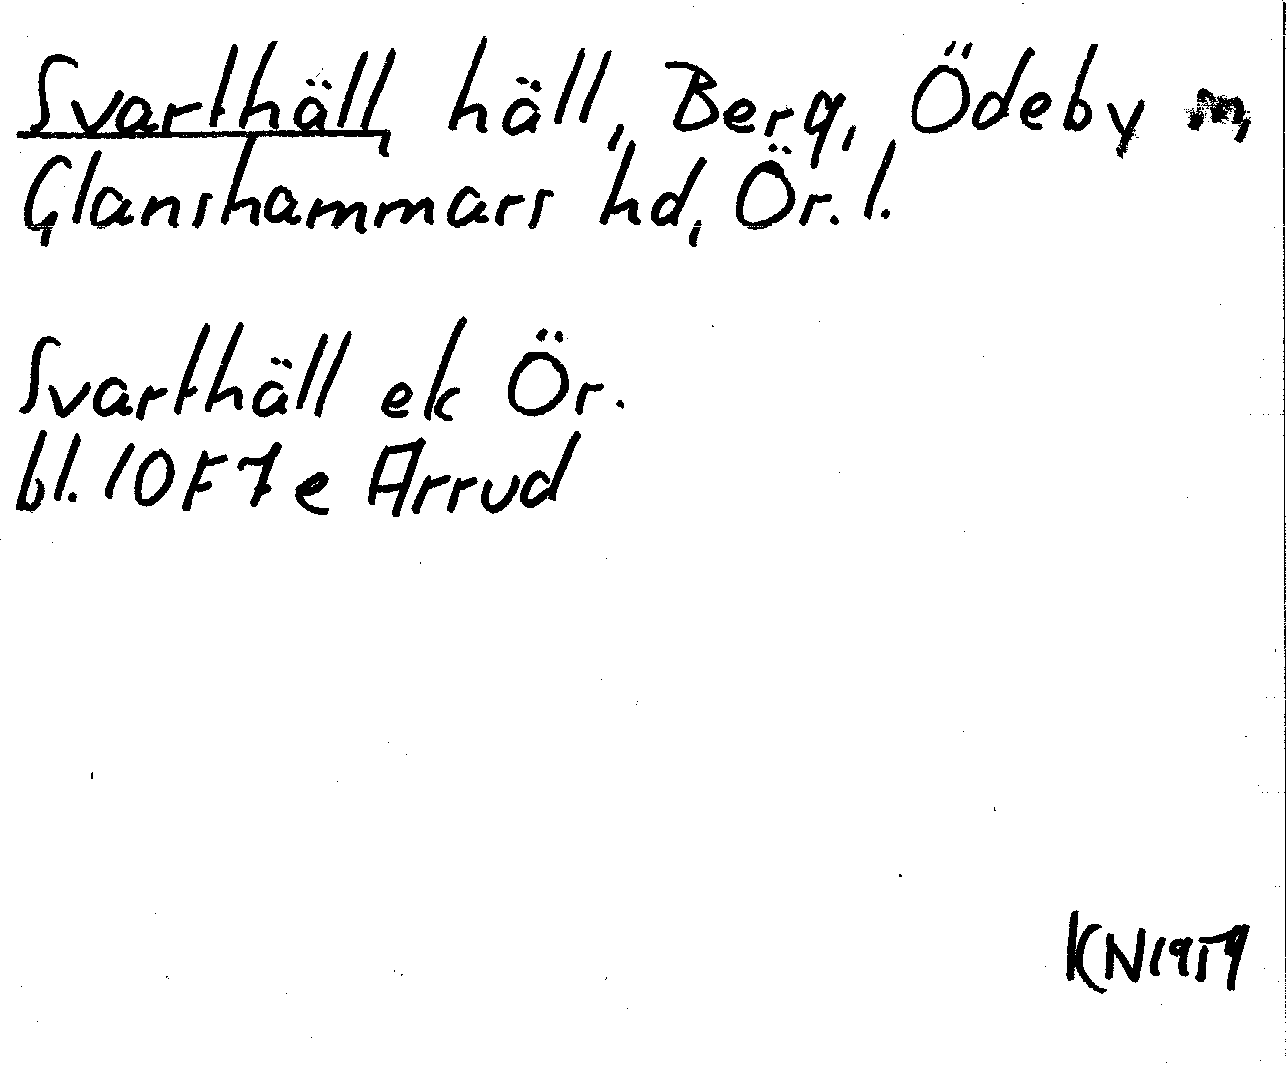 Svarthäll, häll, Berg, Ödeby
Glanshammars hd, Ör. l.
Svarthäll ek Ör.
bl. 10F7e Arrud
KN1959